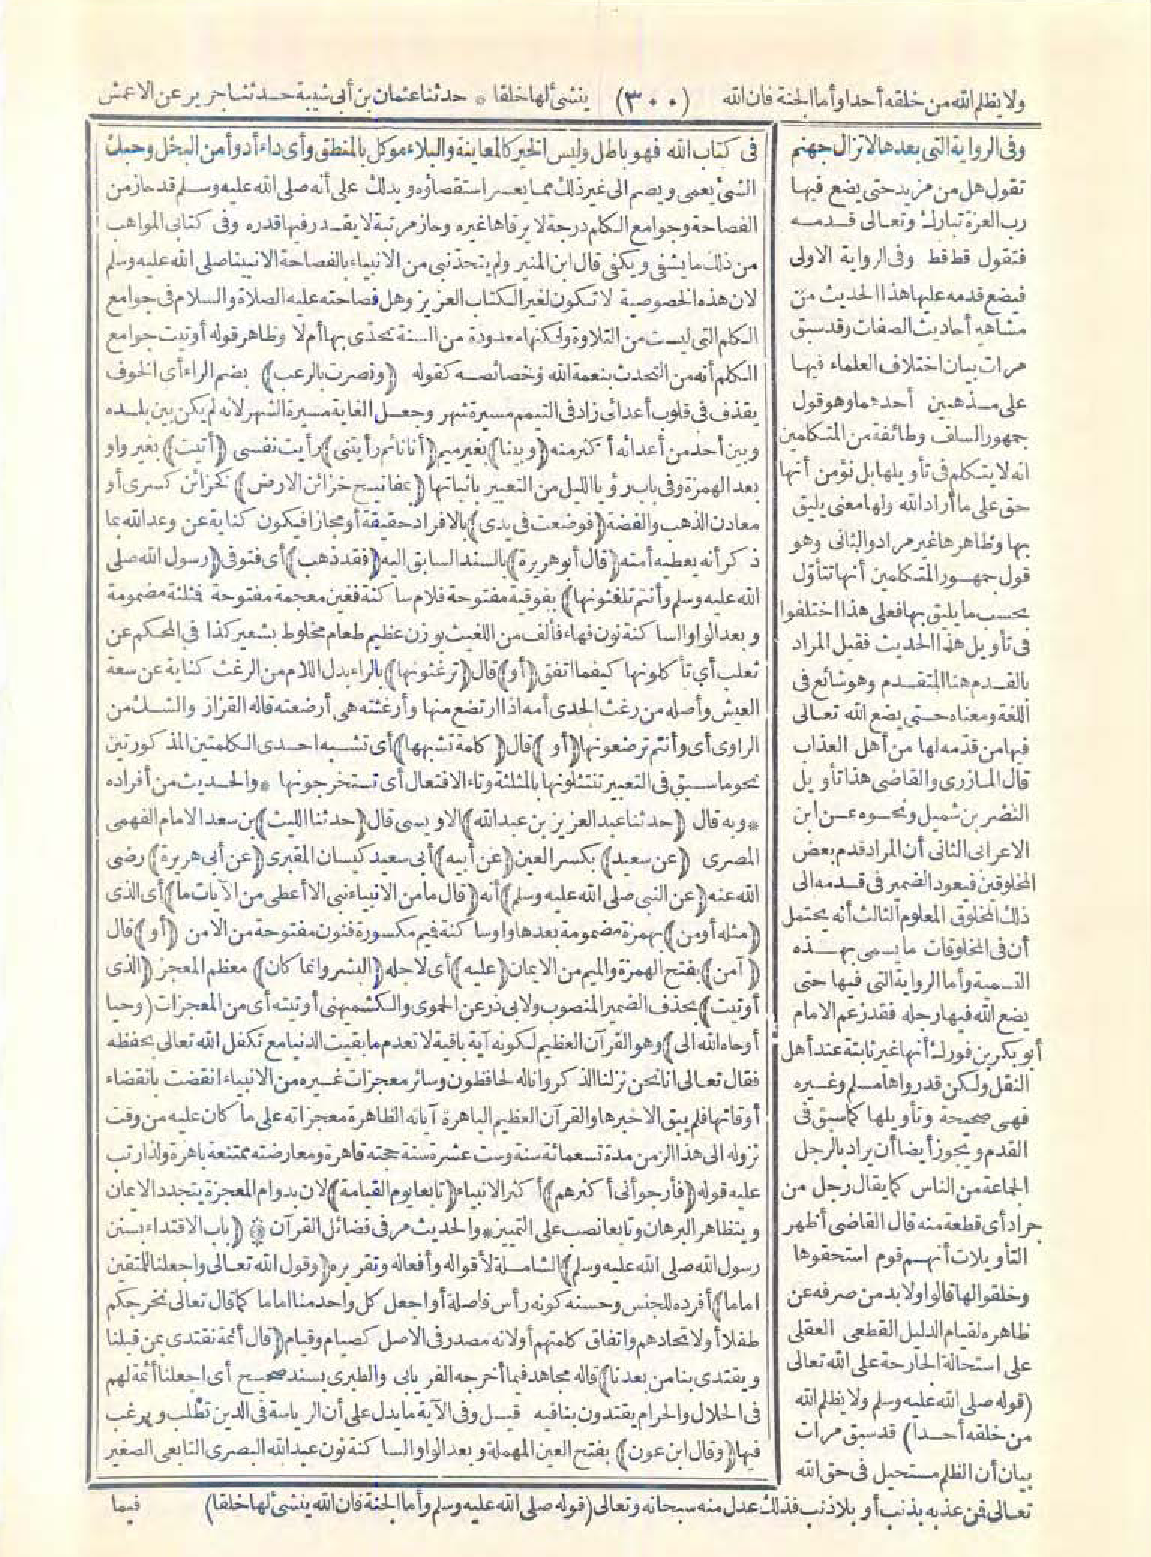 ولا يظلم الله من خلقه أحدا وأما الجنة فان الله (٣٠٠) ينشئ لها خلقا * حدثنا عثمان بن أبى شيبة حدثنا جرير عن الاعمش
وفى الرواية التى بعدها لا تزال جهنم
تقول هل من مزيد حتى يضع فيها
رب العزة تبارك وتعالى قدمه
فتقول قط قط وفى الرواية الاولى
فيضع قدمه عليها هذا الحديث من
مشاهير أحاديث الصفات وقد سبق
مرات بيان اختلاف العلماء فيها
على مذهبين أحدهما وهو قول
جمهور السلف وطائفة من المتكلمين
انه لا يتكلم فى تأويلها بل نؤمن أنها
حق على ما أراد الله ولها معنى يليق
بها وظاهرها غير مراد والثانى وهو
قول جمهور المتكلمين أنها تتأول
بحسب ما يليق بها فعلى هذا اختلفوا
فى تأويل هذا الحديث فقيل المراد
بالقدم هنا المتقدم وهو شائع فى
اللغة ومعناه حتى يضع الله تعالى
فيها من قدمه لها من أهل العذاب
قال المازرى والقاضى هذا تأويل
النضر بن شميل ونحوه عن ابن
الاعرابى الثانى أن المراد قدم بعض
المخلوقين فيعود الضمير فى قدمه الى
ذلك المخلوق المعلوم الثالث أنه يحتمل
أن فى المخلوقات ما يسمى بهذه
التسمية وأما الرواية التى فيها حتى
يضع الله فيها رجله فقد زعم الامام
أبو بكر بن فورك أنها غير ثابتة عند أهل
النقل ولكن قد رواها مسلم وغيره
فهى صحيحة وتأويلها كما سبق فى
القدم ويجوز أيضا أن يراد بالرجل
الجماعة من الناس كما يقال رجل من
جراد أى قطعة منه قال القاضى أظهر
التأويلات أنهم قوم استحقوها
وخلقوا لها قالوا ولا بد من صرفه عن
ظاهره لقيام الدليل القطعى العقلى
على استحالة الجارحة على الله تعالى
(قوله صلى الله عليه وسلم ولا يظلم الله
من خلقه أحدا) قد سبق مرات
بيان أن الظلم مستحيل فى حق الله
فى كتاب الله فهو باطل وليس الخبر كالمعاينة والبلاء موكل بالمنطق وأى داء أدوأ من البخل وحبك
الشئ يعمى ويصم الى غير ذلك مما يعسر استقصاؤه ويدلك على أنه صلى الله عليه وسلم قد حاز من
الفصاحة وجوامع الكلم درجة لا يرقاها غيره وحاز مرتبة لا يقدر فيها قدره وفى كتابى المواهب
من ذلك ما يشفى ويكفى قال ابن المنير ولم يتحد نبى من الانبياء بالفصاحة الا نبينا صلى الله عليه وسلم
لان هذه الخصوصية لا تكون لغير الكتاب العزيز وهل فصاحته عليه الصلاة والسلام فى جوامع
الكلم التى ليست من التلاوة ولكنها معدودة من السنة تحدى بها أم لا وظاهر قوله أوتيت جوامع
الكلم أنه من التحدث بنعمة الله وخصائصه كقوله (ونصرت بالرعب) بضم الراء أى الخوف
يقذف فى قلوب أعدائى زاد فى التيمم مسيرة شهر وجعل الغاية مسيرة الشهر لانه لم يكن بين بلده
وبين أحد من أعدائه أكثر منه (وبينا) بغير ميم (أنا نائم رأيتنى) رأيت نفسى (أتيت) بغير واو
بعد الهمزة وفى باب رؤيا الليل من التعبير باثباتها (بمفاتيح خزائن الارض) كخزائن كسرى أو
معادن الذهب والفضة (فوضعت فى يدى) بالافراد حقيقة أو مجازا فيكون كناية عن وعد الله بما
ذكر أنه يعطيه أمته (قال أبو هريرة) بالسند السابق اليه (فقد ذهب) أى فتوفى (رسول الله صلى
الله عليه وسلم وأنتم تلغثونها) بفوقية مفتوحة فلام ساكنة فغين معجمة مفتوحة فثلثة مضمومة
وبعد الواو الساكنة نون فهاء فألف من اللغيث بوزن عظيم طعام مخلوط بشعير كذا فى المحكم عن
ثعلب أى تأكلونها كيفما اتفق (أو) قال (ترغثونها) بالراء بدل اللام من الرغث كناية عن سعة
العيش وأصله من رغث الجدى أمه اذا ارتضع منها وأرغثته هى أرضعته قاله القزاز والشك من
الراوى أى وأنتم ترضعونها (أو) قال (كلمة تشبهها) أى تشبه احدى الكلمتين المذكورتين
نحو ما سبق فى التعبير تنتثلونها بالمثلثة وتاء الافتعال أى تستخرجونها * والحديث من أفراده
* وبه قال (حدثنا عبد العزيز بن عبد الله) الاويسى قال (حدثنا الليث) بن سعد الامام الفهمى
المصرى (عن سعيد) بكسر العين (عن أبيه) أبى سعيد كيسان المقبرى (عن أبى هريرة) رضى
الله عنه (عن النبى صلى الله عليه وسلم) أنه (قال ما من الانبياء نبى الا أعطى من الآيات ما) أى الذى
(مثله أومن) بهمزة مضمومة بعدها واو ساكنة فميم مكسورة فنون مفتوحة من الامن (أو) قال
(آمن) بفتح الهمزة والميم من الايمان (عليه) أى لاجله (البشر وانما كان) معظم المعجز (الذى
أوتيت) بحذف الضمير المنصوب ولابى ذر عن الحموى والكشميهنى أوتيته أى من المعجزات (وحيا
أوحاه الله الى) وهو القرآن العظيم لكونه آية باقية لا تعدم ما بقيت الدنيا مع تكفل الله تعالى بحفظه
فقال تعالى انا نحن نزلنا الذكر وانا له لحافظون وسائر معجزات غيره من الانبياء انقضت بانقضاء
أوقاتها فلم يبق الا خبرها والقرآن العظيم الباهرة آياته الظاهرة معجزاته على ما كان عليه من وقت
نزوله الى هذا الزمن مدة تسعمائة سنة وست عشرة سنة حجته قاهرة ومعارضته ممتنعة باهرة ولذا رتب
عليه قوله (فأرجو أنى أكثرهم) أكثر الانبياء (تابعا يوم القيامة) لان بدوام المعجزة يتجدد الايمان
ويتظاهر البرهان وتابعا نصب على التمييز * والحديث مر فى فضائل القرآن (باب الاقتداء بسنن
رسول الله صلى الله عليه وسلم) الشاملة لأقواله وأفعاله وتقريره (وقول الله تعالى واجعلنا للمتقين
اماما) أفرده للجنس وحسنه كونه رأس فاصلة أو اجعل كل واحد منا اماما كما قال تعالى نخرجكم
طفلا أو لاتحادهم واتفاق كلمتهم أو لانه مصدر فى الاصل كصيام وقيام (قال أئمة نقتدى بمن قبلنا
ويقتدى بنا من بعدنا) قاله مجاهد فيما أخرجه الفريابى والطبرى بسند صحيح أى اجعلنا أئمة لهم
فى الحلال والحرام يقتدون بنا فيه قيل وفى الآية ما يدل على أن الرياسة فى الدين تطلب ويرغب
فيها (وقال ابن عون) بفتح العين المهملة وبعد الواو الساكنة نون عبد الله البصرى التابعى الصغير
تعالى فمن عذبه بذنب أو بلا ذنب فذلك عدل منه سبحانه وتعالى (قوله صلى الله عليه وسلم وأما الجنة فان الله ينشئ لها خلقا) فيما